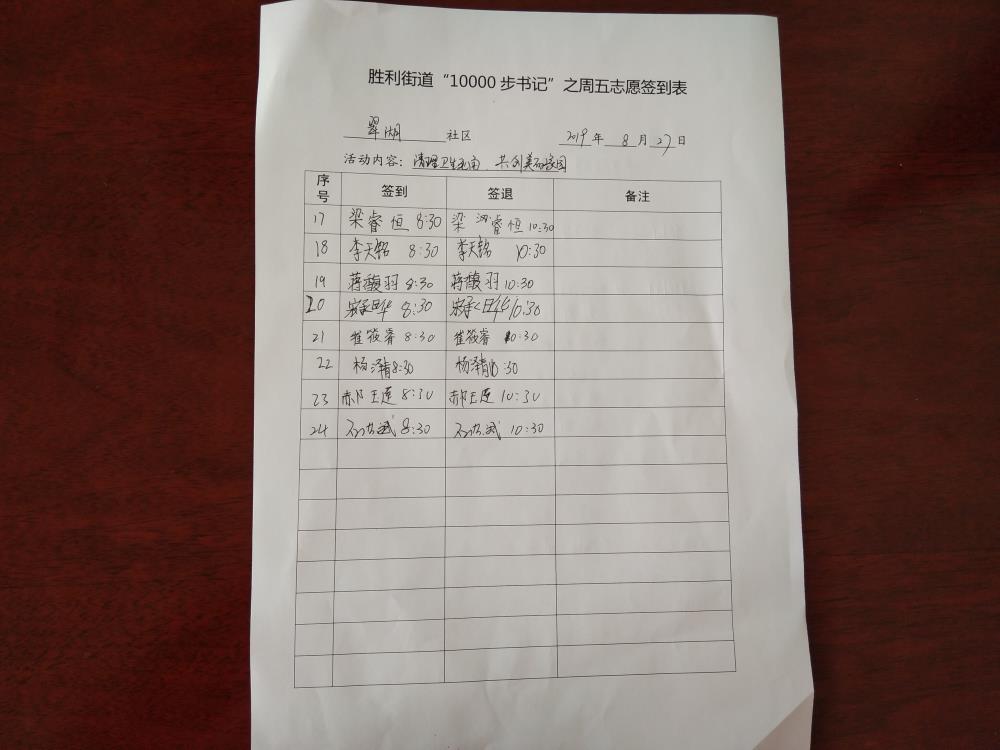 胜利街道“10000步书记”之周五志愿签到表
翠湖 社区 2019 年 8 月 27 日
活动内容：清理卫生死角、共创美丽家园
序号 签到 签退 备注
17 梁睿恒 8:30 梁睿恒 10:30
18 李天铭 8:30 李天铭 10:30
19 蒋馥羽 8:30 蒋馥羽 10:30
20 8:30 10:30
21 崔筱睿 8:30 崔筱睿 10:30
22 杨泽清 8:30 杨泽清 10:30
23 郝玉莲 8:30 郝玉莲 10:30
24 8:30 10:30